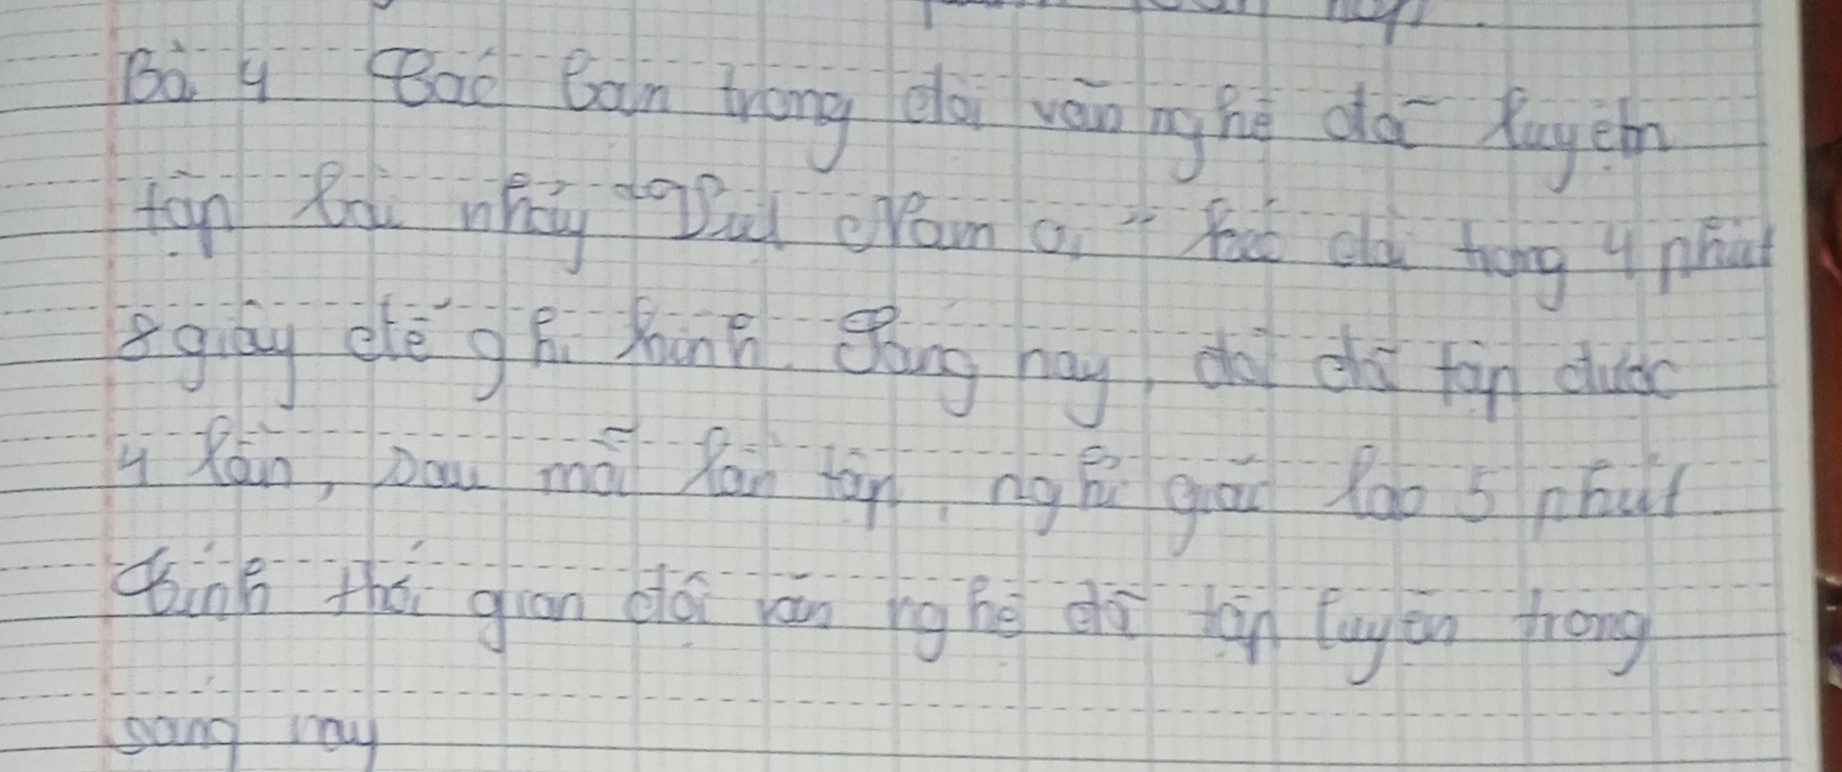 Bài 4 Các bạn trong đội văn nghệ đã luyện
tập bài nhảy "Việt Nam ơi" kéo dài trong 4 phút
8 giây để ghi hình. Sáng nay, đội đã tập được
4 lần, sau mỗi lần tập, nghỉ giải lao 5 phút.
Tính thời gian đội văn nghệ đã tập luyện trong
sáng nay